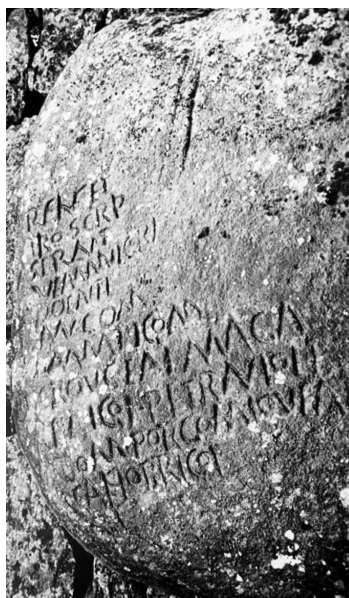 TIRO SCRIP
SERVNT
VEAMINICORI
DOENTI
ANGOM
LAMATICOM
CROVCEAI MAGA
REAICOI PETRANIOI
ADOM PORGOM IOVEA
CAELOBRICOI